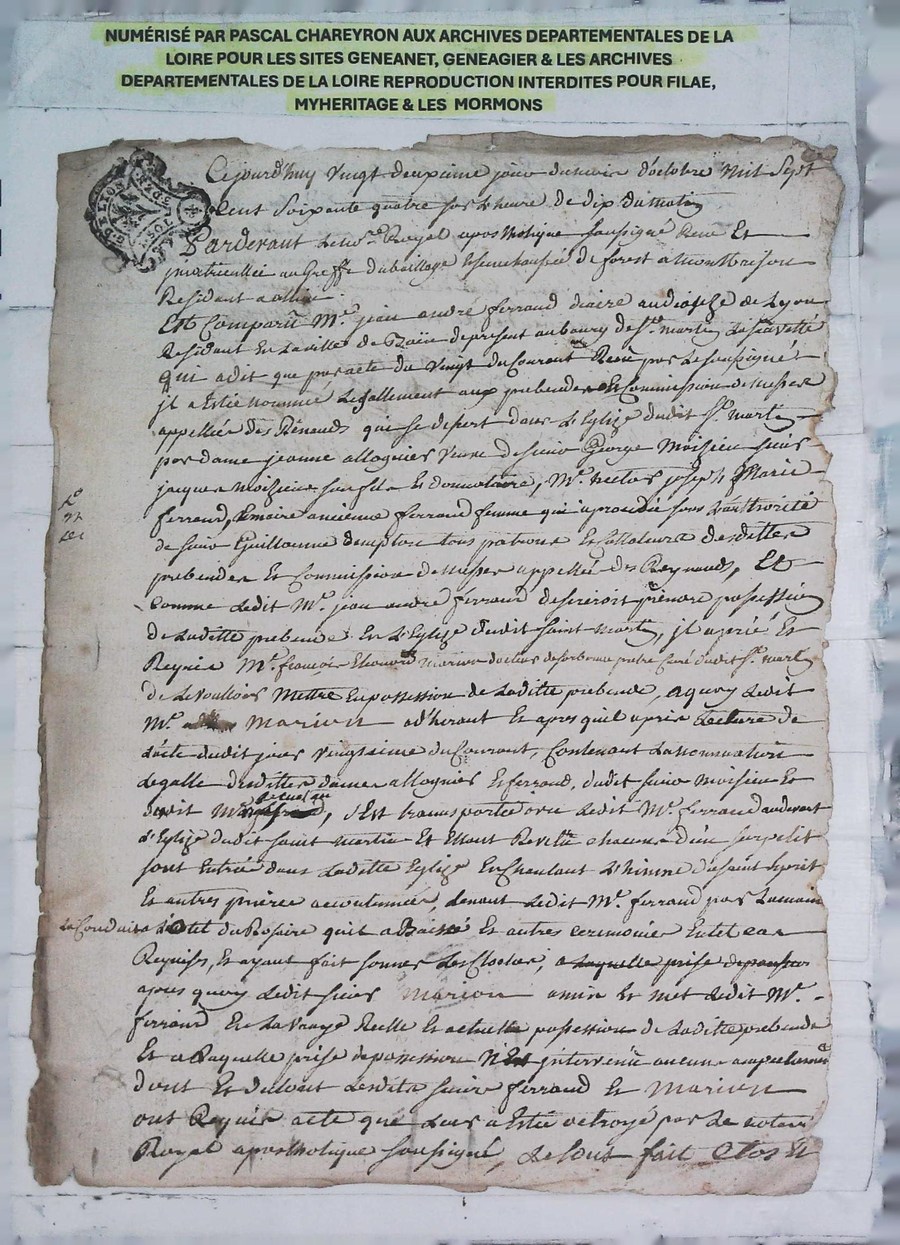 NUMÉRISÉ PAR PASCAL CHAREYRON AUX ARCHIVES DEPARTEMENTALES DE LA
LOIRE POUR LES SITES GENEANET, GENEAGIER & LES ARCHIVES
DEPARTEMENTALES DE LA LOIRE REPRODUCTION INTERDITES POUR FILAE,
MYHERITAGE & LES MORMONS
Cejourd'huy vingt deuxieme jour du mois d'octobre mil sept
cent soixante quatre sur l'heure de dix du matin
Pardevant le no.re Royal apostholique soussigné Receu Et
immatricullé au Greffe du bailliage et senechaussée de forest a Montbrison
Residant a
Est Comparu M.e jean andré ferraud diacre du dioceze de Lyon
Residant En la ville de depresent au bourg de S.t martin
qui a dit que par acte du vingt du Courant Receu par le soussigné
il a Estée nommé Legallement aux prebendes et Commission de Messes
appellée des Rénauds qui se desert dans L'Eglize dudit S.t martin
par dame jeanne allognier veuve de sieur George Moisieu sieur
jacques Moisieu son fils et donnataire, M.e hector joseph Marie
ferraud, ferraud femme qui a procedé sous L'authorité
de sieur Guillaume tous patrons et Collateurs desdittes
prebendes Et Commission de Messes appellée des Reynauds, Et
comme Ledit M.e jean andré ferraud desireroit prendre possession
de Laditte prebende En L'Eglize dudit saint martin, il a prié Et
Requis M.e françois Marion docteur de sorbonne pretre Curé dudit S.t martin
de le vouloir Mettre En possession de Laditte prebende, a quoy Ledit
M.e Marion adherant Et apres qu'il a pris Lecture de
L'acte dudit jour vingtieme du Courant, Contenant La nommination
Legalle desdittes dames allognier Et ferraud, dudit sieur Moisieu Et
dudit , s'Est transportée avec Ledit M.e ferraud audevant
d'Eglize dudit saint martin Et Etant Revettu chacun d'un surpelit
sont Entrée dans Laditte Eglize En Chantant L'himne du saint Esprit
Et autres prieres acoutumées, tenant Ledit M.e ferraud par Lamain
La Conduit a L'Otel du Rosaire qu'il a Baisée Et autres ceremonies En tel cas
Requises, Et ayant fait sonner Les Cloches, a Laquelle prise de possession
apres quoy Ledit sieur Marion a mis Et met Ledit M.e
ferraud En La vraye Reelle Et actuelle possession de Laditte prebende
Et a Laquelle prise de possession N'Est intervenu aucune
dont Et du tout Lesdits sieurs ferraud Et Marion
ont Requis acte que Leur a Estée octroyé par Le notaire
Royal apostholique soussigné, de tout fait Clos Et